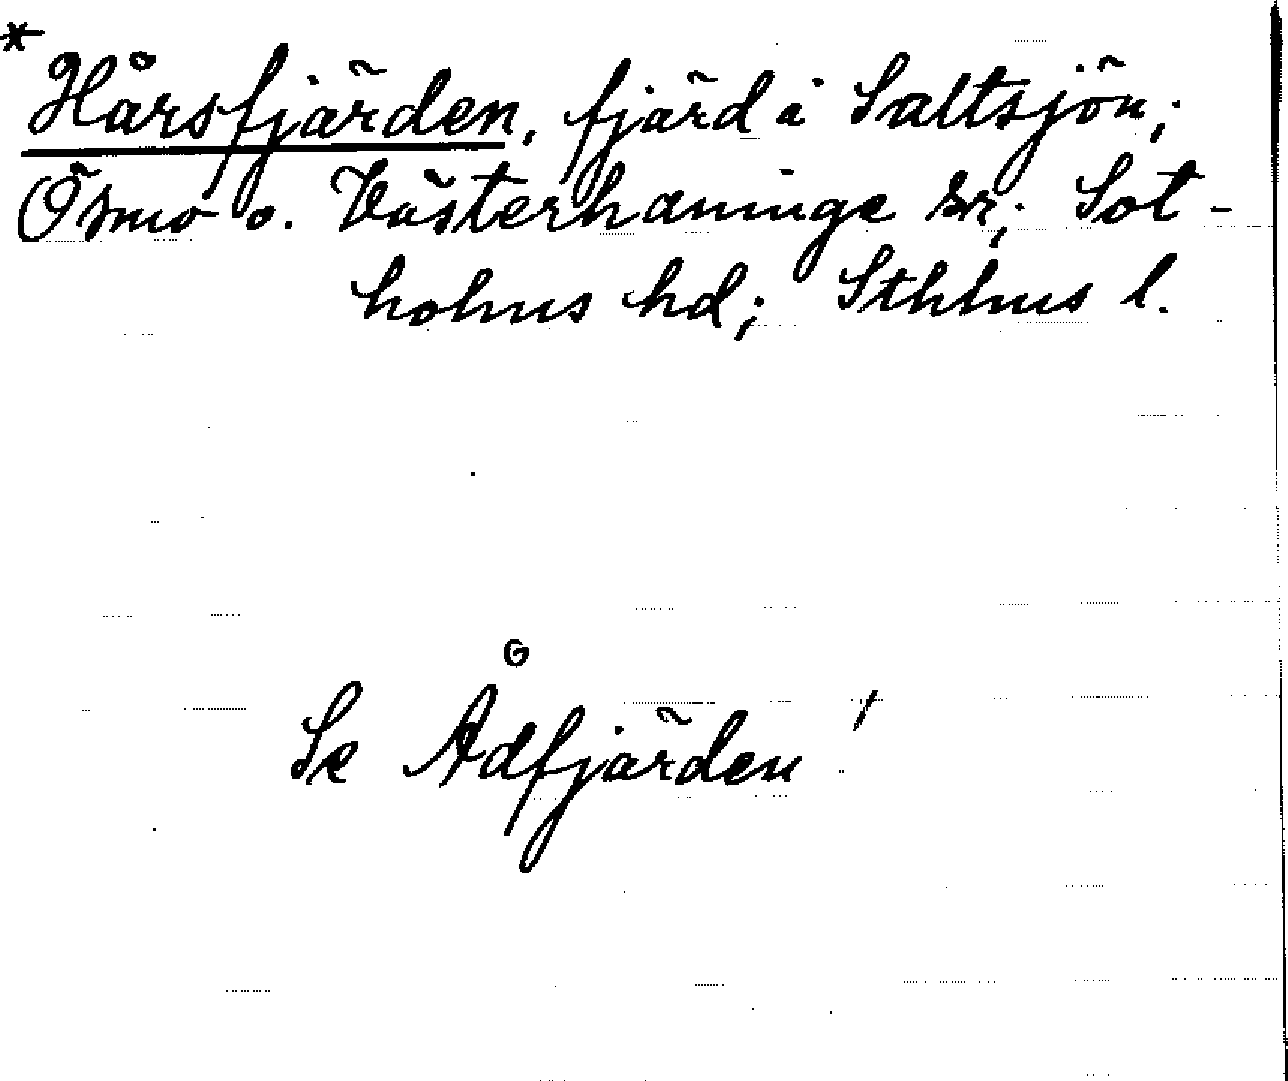 * Hårsfjärden, fjärd i Saltsjön;
Ösmo o. Västerhaninge snr; Sot-
holms hd; Sthlms l.
Se Ådfjärden!